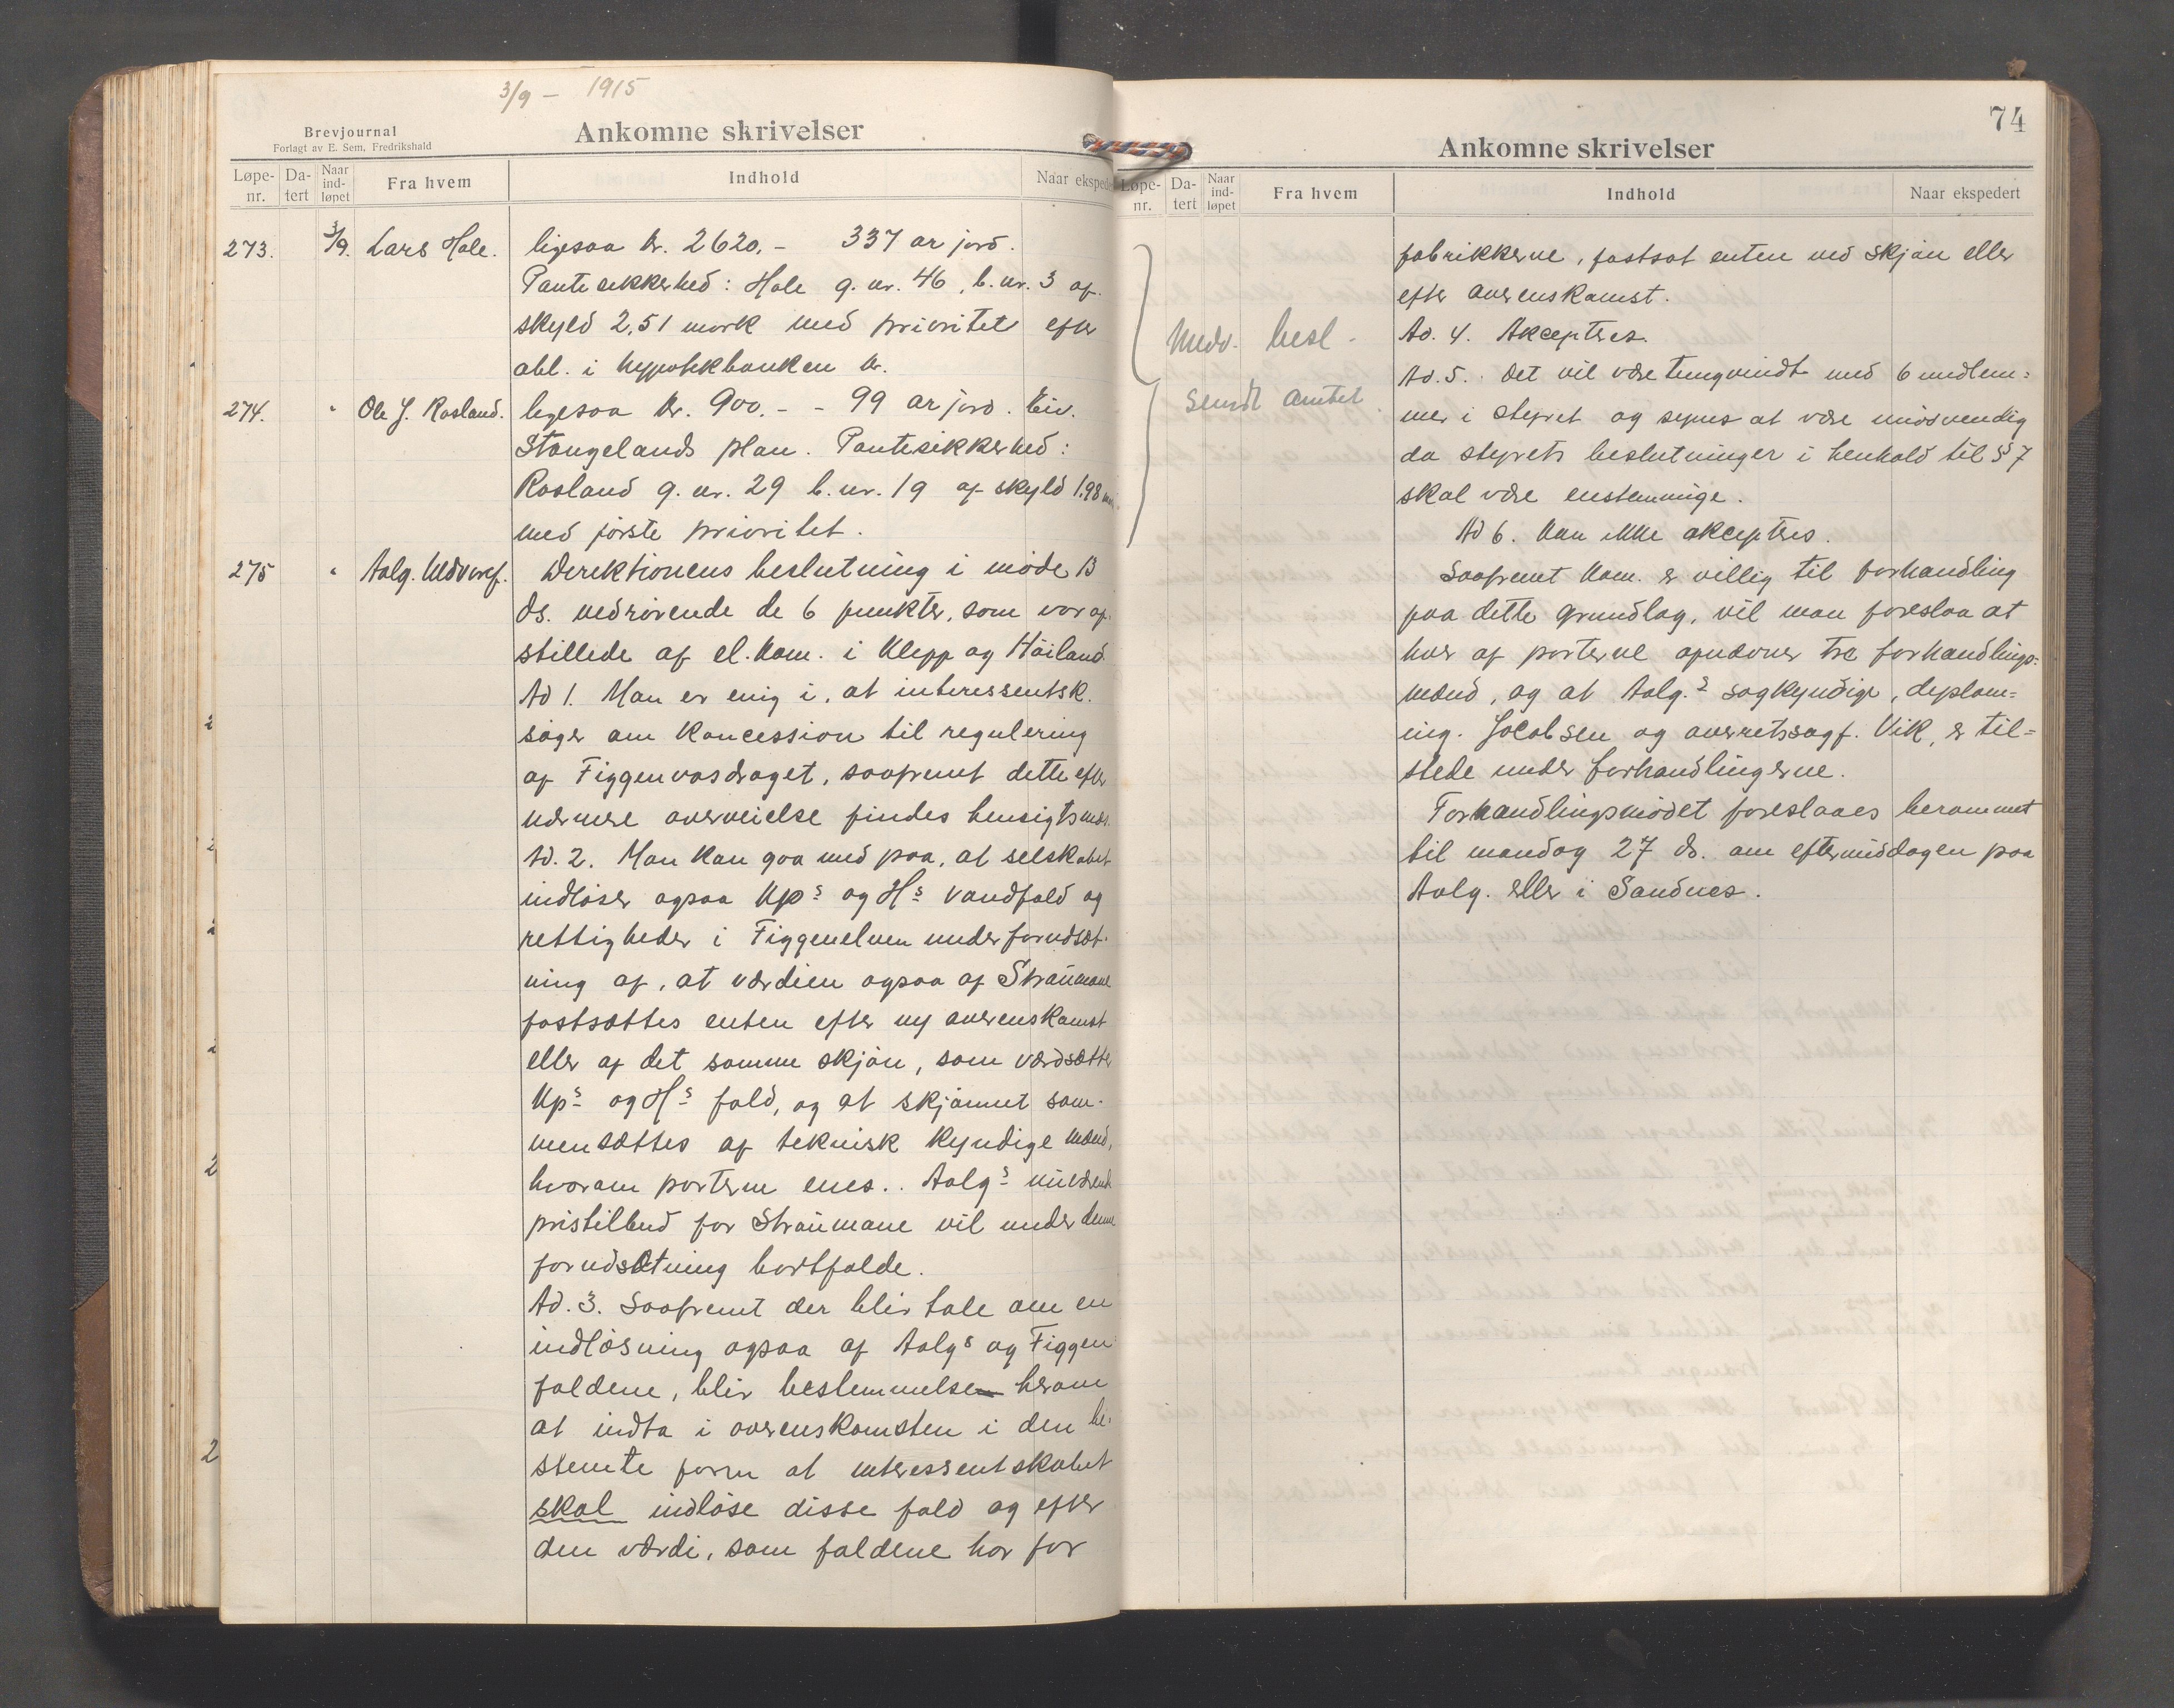 3/9 - 1915
Brevjournal
Forlagt av E. Sem, Fredrikshald
Ankomne skrivelser
Løpe-nr. Da-tert Naar ind-løpet Fra hvem Indhold Naar eksped
273. 3/9. Lars Hole. ligesaa kr. 2620.- 337 ar jord.
Pantesikkerhed: Hole g. nr. 46, b. nr. 3 af
skyld 2,51 mark med prioritet efter
obl. i hypotekbanken kr.
274. " Ole J. Rosland. ligesaa kr. 900.- - 99 ar jord. Eiv.
Stangelands plan. Pantesikkerhed:
Rosland g. nr. 29 b. nr. 19 af skyld 1.98
med første prioritet.
275 " Aalg. Uldvaref. Direktionens beslutning i møde 13
ds. vedrørende de 6 punkter, som var op-
stillede af el. kom. i Klepp og Høiland.
Ad 1. Man er enig i, at interessentsk.
søger om koncession til regulering
af Figgenvasdraget, saafremt dette efter
nærmere overveielse findes hensigtsmæs.
Ad. 2. Man kan gaa med paa, at selskabet
indløser ogsaa Kps og Hs vandfald og
rettigheder i Figgenelven under forudsæt-
ning af, at værdien ogsaa af Straumane
fastsættes enten efter ny overenskomst
eller af det samme skjøn, som værdsætter
Kps og Hs fald, og at skjønnet sam-
mensættes af teknisk kyndige mænd,
hvorom parterne enes. Aalgs nuværende
pristilbud for Straumane vil under denne
forudsætning bortfalde.
Ad. 3. Saafremt der blir tale om en
indløsning ogsaa af Aalgs og Figgen
faldene, blir bestemmelsen herom
at indta i overenskomsten i den be-
stemte form at interessentskabet
skal indløse disse fald og efter
den værdi, som faldene har for
74
Ankomne skrivelser
Løpe-nr. Da-tert Naar ind-løpet Fra hvem Indhold Naar ekspedert
Medv. besl.
sendt amtet
fabrikkerne, fastsat enten ved skjøn eller
efter overenskomst.
Ad. 4. Akceptres.
Ad. 5. Det vil være tungvindt med 6 medlem=
mer i styret og synes at være unødvendig
da styrets beslutninger i henhold til § 7
skal være enstemmige.
Ad 6. Kan ikke akceptres.
Saafremt kom. er villig til forhandling
paa dette grundlag, vil man foreslaa at
hver af parterne opnævner tre forhandlings=
mænd, og at Aalg.s sagkyndige, diplom=
ing. Jacobsen og overretssagf. Vik, er til=
stede under forhandlingerne.
Forhandlingsmødet foreslaaes berammet
til mandag 27 ds. om eftermiddagen paa
Aalg. eller i Sandnes.